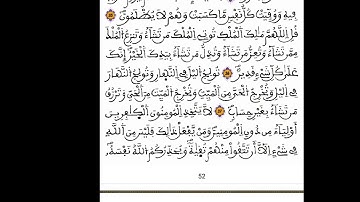 فِيهِ وَوُفِّيَتْ كُلُّ نَفْسٍ مَّا كَسَبَتْ وَهُمْ لَا يُظْلَمُونَ
قُلِ اِ۬للَّهُمَّ مَٰلِكَ اَ۬لْمُلْكِ تُوتِے اِ۬لْمُلْكَ مَن تَشَآءُ وَتَنزِعُ اُ۬لْمُلْكَ
مِمَّن تَشَآءُ وَتُعِزُّ مَن تَشَآءُ وَتُذِلُّ مَن تَشَآءُ بِيَدِكَ اَ۬لْخَيْرُ إِنَّكَ
عَلَىٰ كُلِّ شَےْءٍ قَدِيرٌ تُولِجُ اُ۬ليْلَ فِے اِ۬لنَّهَارِ وَتُولِجُ اُ۬لنَّهَارَ
فِے اِ۬ليْلِ وَتُخْرِجُ اُ۬لْحَيَّ مِنَ اَ۬لْمَيِّتِ وَتُخْرِجُ اُ۬لْمَيِّتَ مِنَ اَ۬لْحَيِّ وَتَرْزُقُ
مَن تَشَآءُ بِغَيْرِ حِسَابٍ لَّا يَتَّخِذِ اِ۬لْمُومِنُونَ اَ۬لْكَٰفِرِينَ
أَوْلِيَآءَ مِن دُونِ اِ۬لْمُومِنِينَ وَمَن يَفْعَلْ ذَٰلِكَ فَلَيْسَ مِنَ اَ۬للَّهِ
فِے شَےْءٍ اِلَّآ أَن تَتَّقُوا۟ مِنْهُمْ تُقَيٰةً وَيُحَذِّرُكُمُ اُ۬للَّهُ نَفْسَهُۥ
52